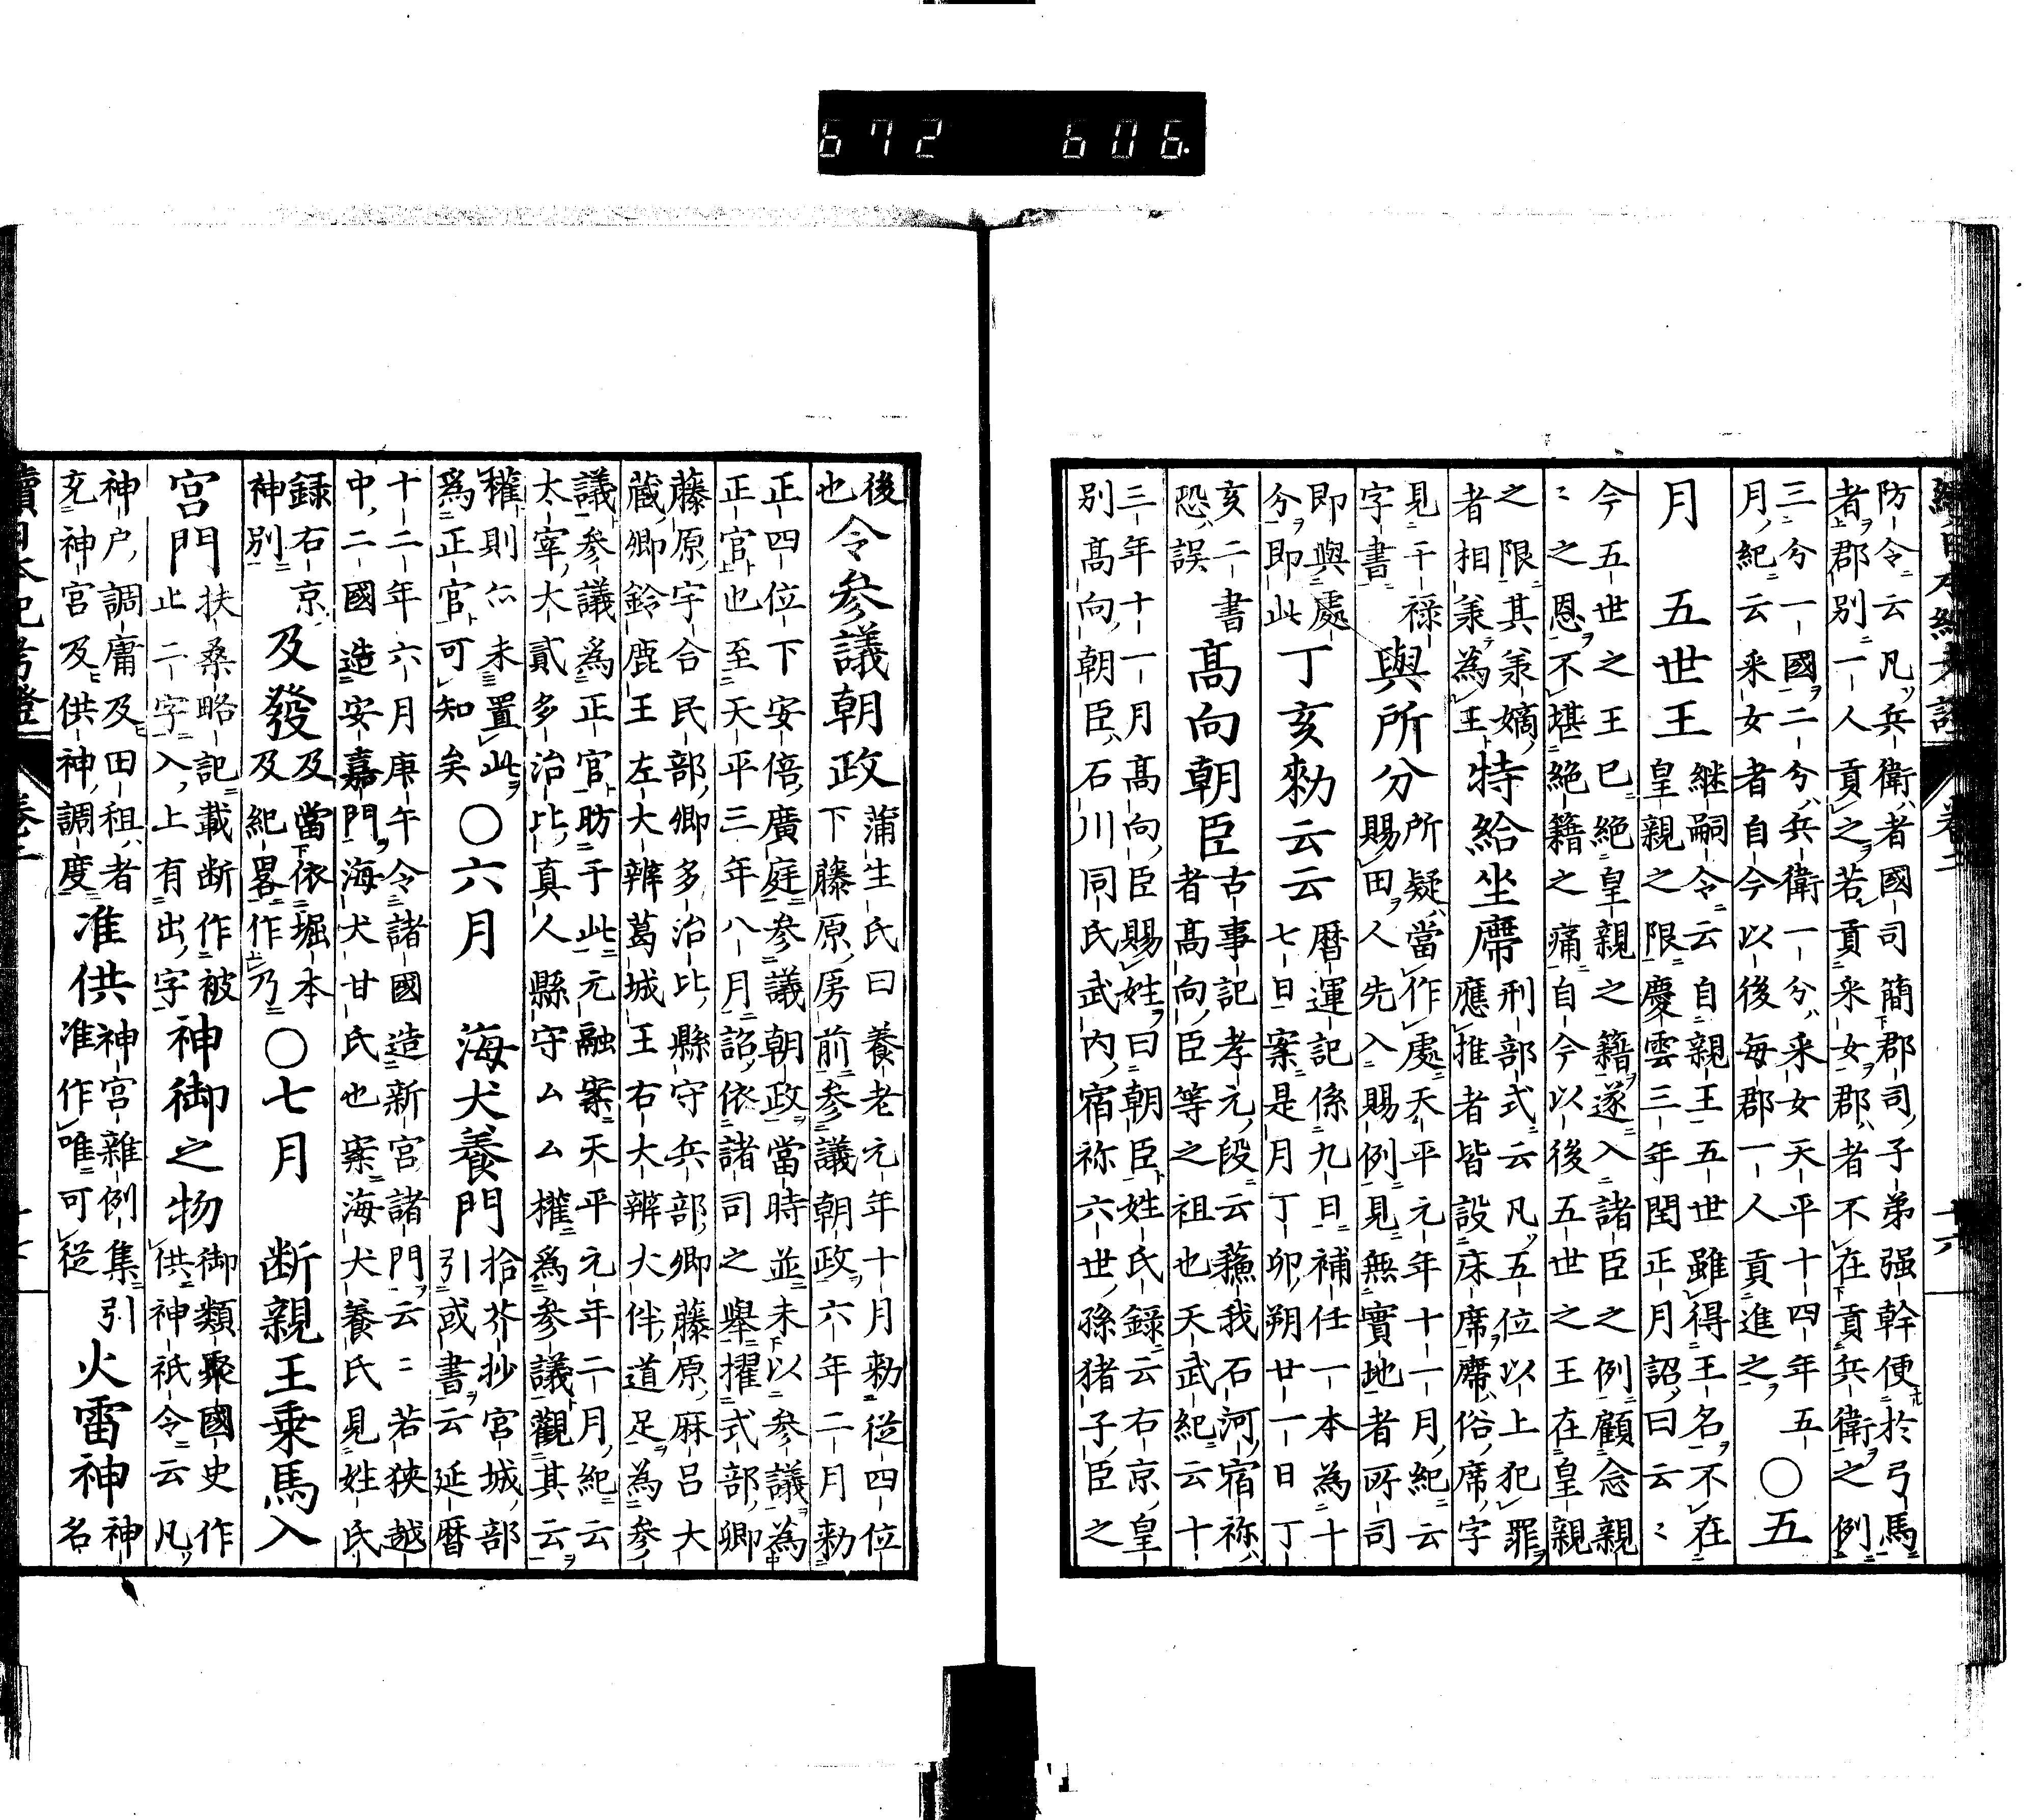 續日本紀考證 卷二 十六
防令云凡兵衛者國司簡郡司子弟强幹便於弓馬
者郡別一人貢之若貢采女郡者不在貢兵衛之例
三分一國二分兵衛一分采女天平十四年五
月紀云采女者自今以後每郡一人貢進之
○五
月　五世王
継嗣令云自親王五世雖得王名不在
皇親之限慶雲三年閏正月詔曰云〻
今五世之王已絕皇親之籍遂入諸臣之例顧念親
〻之恩不堪絕籍之痛自今以後五世之王在皇親
之限其承嫡
者相承為王
特給坐席
刑部式云凡五位以上犯罪
應推者皆設床席席俗席字
見干祿
字書
與所分
所疑當作處天平元年十一月紀云
賜田人先入賜例見無實地者所司
即與處
分即此
丁亥勅云云
暦運記係九日補任一本為十
七日案是月丁卯朔廿一日丁
亥二書
恐誤
高向朝臣
古事記孝元段云蘓我石河宿祢
者高向臣等之祖也天武紀云十
三年十一月高向臣賜姓曰朝臣姓氏錄云右京皇
別高向朝臣石川同氏武内宿祢六世孫猪子臣之
後
也
令參議朝政
蒲生氏曰養老元年十月勅從四位
下藤原房前參議朝政六年二月勅
正四位下安倍廣庭參議朝政當時並未以參議為
正官也至天平三年八月詔依諸司之舉擢式部卿
藤原宇合民部卿多治比縣守兵部卿藤原麻呂大
藏卿鈴鹿王左大辨葛城王右大辨大伴道足為參
議參議為正官昉于此元融案天平元年二月紀云
太宰大貳多治比真人縣守厶厶權為參議觀其云
權則尒未置此
爲正官可知矣
○六月　海犬養門
拾芥抄宮城部
引或書云延暦
十二年六月庚午令諸國造新宮諸門云〻若狹越
中二國造安嘉門海犬甘氏也案海犬養氏見姓氏
録右京
神別
及發
及當依堀本
及紀畧作乃
○七月　断親王乘馬入
宮門
扶桑略記載断作被
止二字入上有出字
神御之物
御類聚國史作
供神祇令云凡
神户調庸及田租者
充神宮及供神調度
准供
神宮雜例集引
准作唯可從
火雷神
神
名
續日本紀考證 卷二